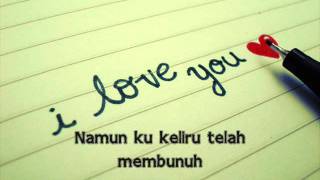 i love you
Namun ku keliru telah
membunuh